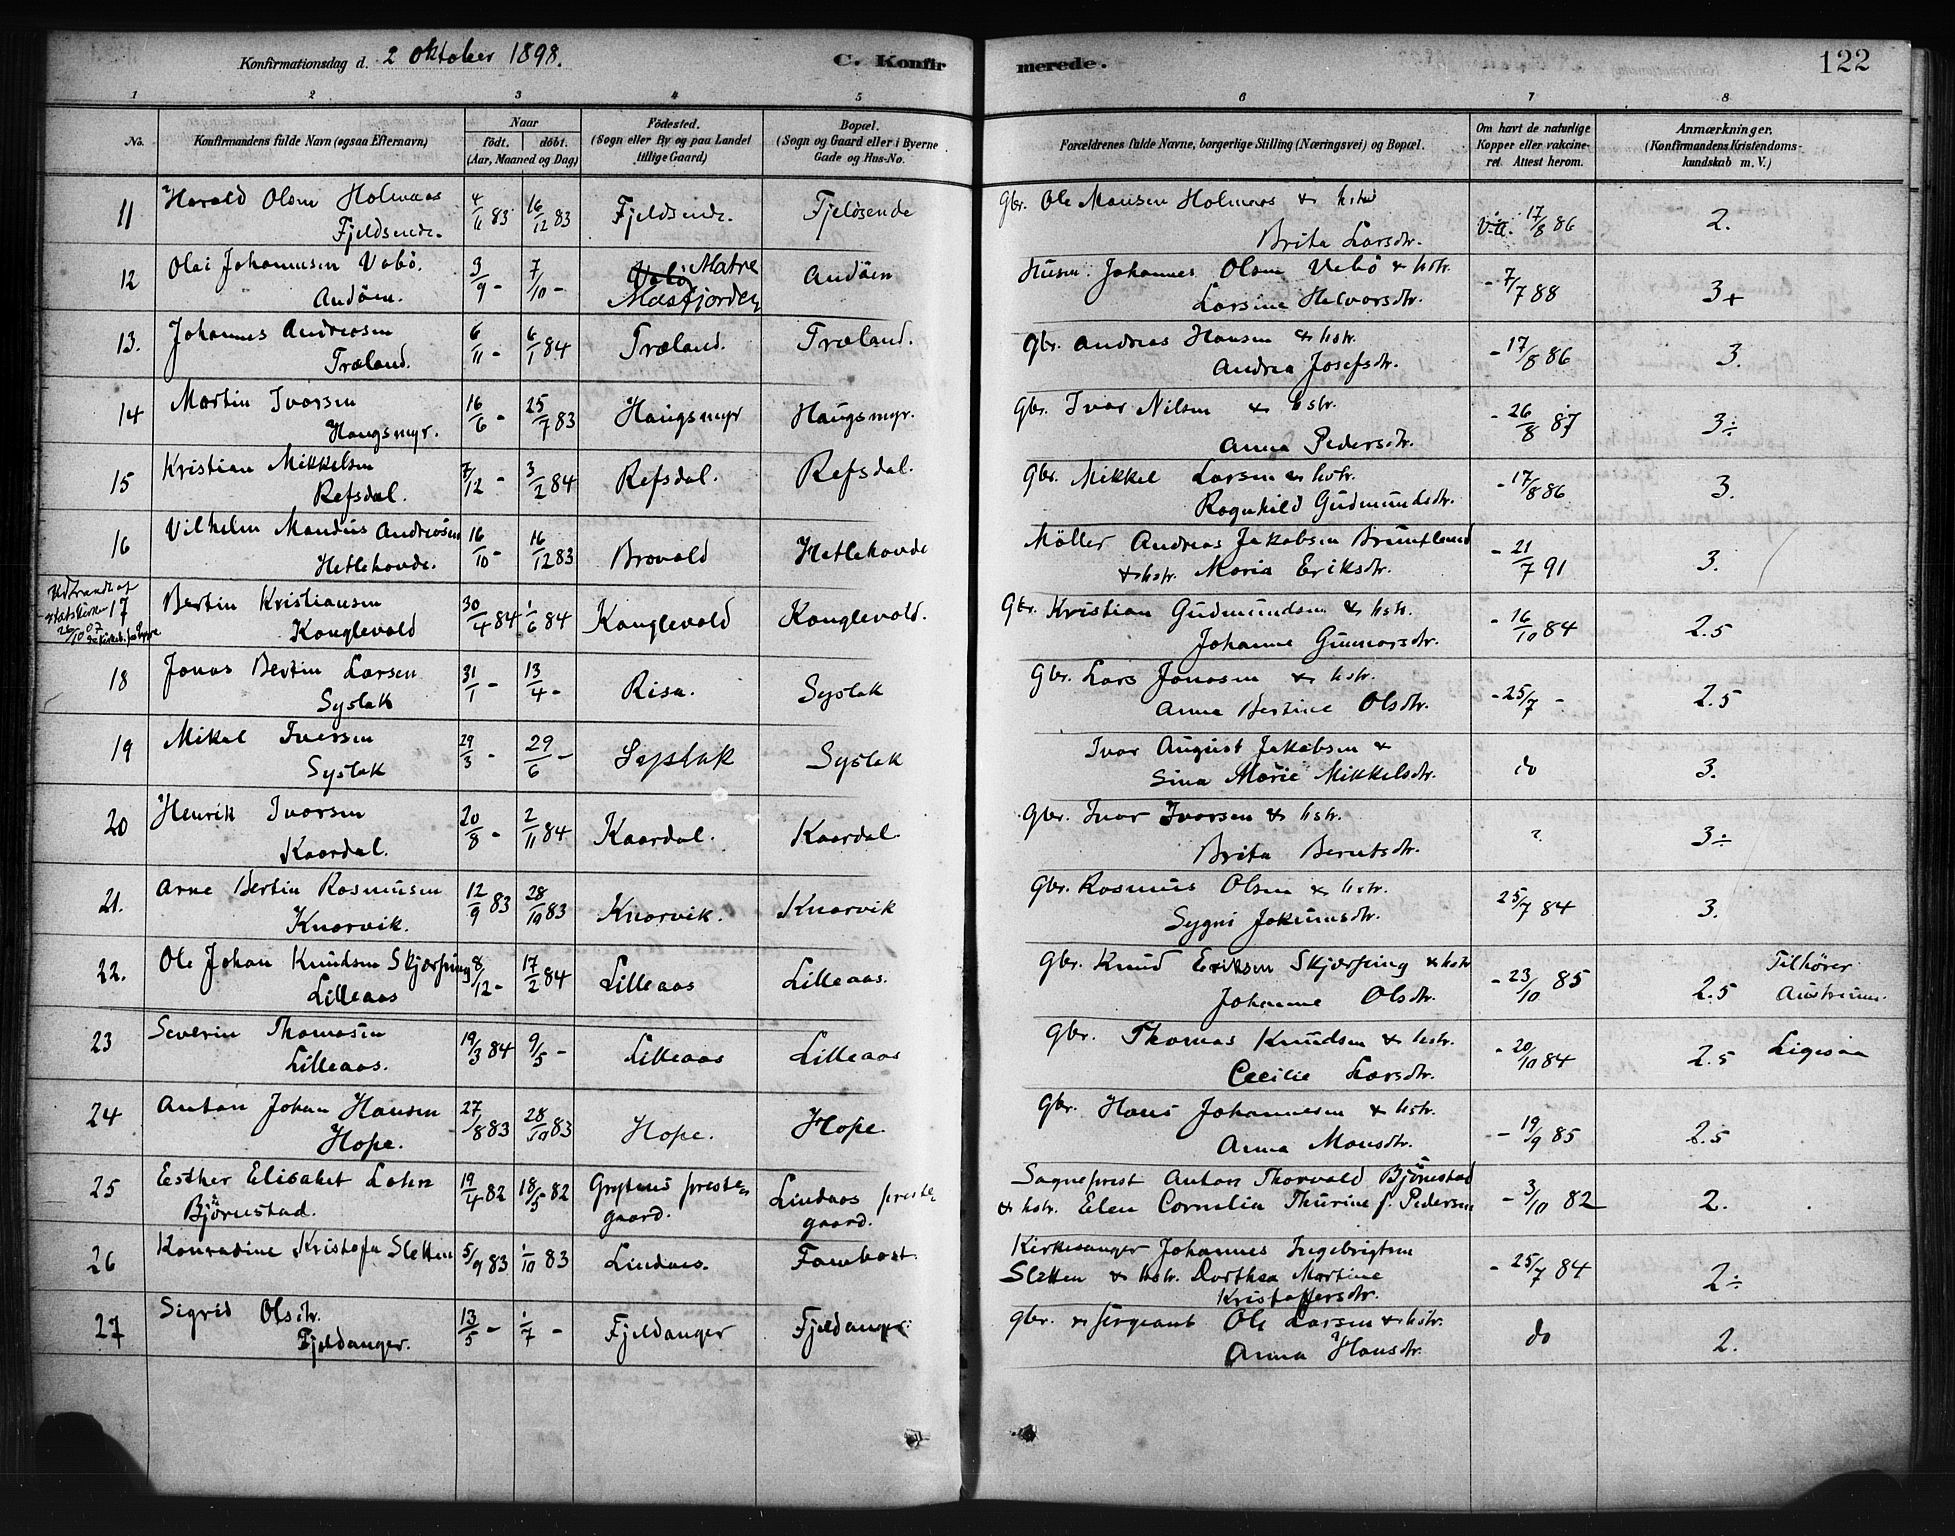 Konfirmationsdag d. 2 Oktober 1898.
C. Konfirmerede.
122
1 2 3 4 5 6 7 8
No.
Konfirmandens fulde Navn (ogsaa Efternavn)
Naar
födt. döbt.
(Aar, Maaned og Dag)
Födested.
(Sogn eller By og paa Landet
tillige Gaard)
Bopæl.
(Sogn og Gaard eller i Byerne
Gade og Hus-No.
Forældrenes fulde Navne, borgerlige Stilling (Næringsvei) og Bopæl.
Om havt de naturlige
Kopper eller vakcine-
ret. Attest herom.
Anmærkninger.
(Konfirmandens Kristendoms-
kundskab m. V.)
11 Harald Olsen Holmaas 4/11 83 16/12 83 Fjeldsende. Fjeldsende Gbr. Ole Mansen Holmaas & hstru 17/8 86 2.
Fjeldsende. Brita Larsdtr.
12 Olai Johannesen Vabö. 3/9 - 7/10 - Vabö Matre Andöen Husm. Johannes Olsen Vabö & hstr. - 7/7 88 3+
Andöen. Masfjorden Larsine Halvorsdtr.
13. Johannes Andreasen 6/11 - 6/1 84 Træland. Træland. Gbr. Andreas Hansen & hstr. - 17/8 86 3.
Træland. Andrea Josefsdtr.
14 Martin Ivarsen 16/6 - 25/7 83 Haugsmyr Haugsmyr. Gbr. Ivar Nilsen & hstr. - 26/8 87 3÷
Haugsmyr. Anna Pedersdtr.
15 Kristian Mikkelsen 7/12 - 3/2 84 Refsdal. Refsdal. Gbr. Mikkel Larsen & hstr. - 17/8 86 3.
Refsdal. Ragnhild Gudmundsdtr.
16 Vilhelm Mandius Andreasen 16/10 - 16/12 83 Brovold Hetlehovde Möller Andreas Jakobsen Bruntland - 21/7 91 3.
Hetlehovde. & hstr. Maria Eriksdtr.
Udtraadt af
Statskirken
26/10 07
17 Bertin Kristiansen 30/4 84 1/6 84 Kanglevold Kanglevold. Gbr. Kristian Gudmundsen & hstr. - 16/10 84 2.5
Kanglevold Johanne Gunnarsdtr.
18 Jonas Bertin Larsen 31/1 - 13/4 - Risa. Syslak Gbr. Lars Jonasen & hstr. - 25/7 - 2.5
Syslak Anna Bertine Olsdtr.
19 Mikal Ivarsen 29/3 - 29/6 - Syslak Syslak Ivar August Jakobsen & do 3.
Syslak Sina Marie Mikkelsdtr.
20 Henrik Ivarsen 20/8 - 2/11 84 Kaardal. Kaardal Gbr. Ivar Ivarsen & hstr. ? 3÷
Kaardal. Brita Berntsdtr.
21. Arne Bertin Rasmusen 12/9 83 28/10 83 Knarvik. Knarvik Gbr. Rasmus Olsen & hstr. 25/7 84 3.
Knarvik. Sygni Jokumsdtr.
22. Ole Johan Knudsen Skjærping 8/12 - 17/2 84 Lilleaas Lilleaas. Gbr. Knud Eriksen Skjærping & hstr - 23/10 85 2.5 Tilhører
Lilleaas Johanne Olsdtr. Austrium.
23 Severin Thomasen 19/3 84 9/5 - Lilleaas Lilleaas Gbr. Thomas Knudsen & hstr. - 20/10 84 2.5 Ligesaa
Lilleaas. Cecilie Larsdtr.
24 Anton Johan Hansen 27/8 83 28/10 83 Hope. Hope Gbr. Hans Johannesen & hstr. - 19/9 85 2.5
Hope. Anna Monsdtr.
25 Esther Elisabet Lohn 19/4 82 18/5 82 Grytens preste Lindaas preste Sogneprest Anton Thorvald Björnstad - 3/10 82 2.
Björnstad. gaard. gaard. & hstr. Elen Cornelia Thurine f. Pedersen
26 Konradine Kristofa Sletten 5/9 83 1/10 83 Lindaas. Fanebost Kirkesanger Johannes Ingebrigtsen - 25/7 84 2÷
Sletten & hstr. Dorthea Martine
Kristoffersdtr.
27 Sigrid Olsdtr. 13/5 - 1/7 - Fjeldanger Fjeldanger Gbr. & sergeant Ole Larsen & hstr. do 2.
Fjeldanger. Anna Hansdtr.